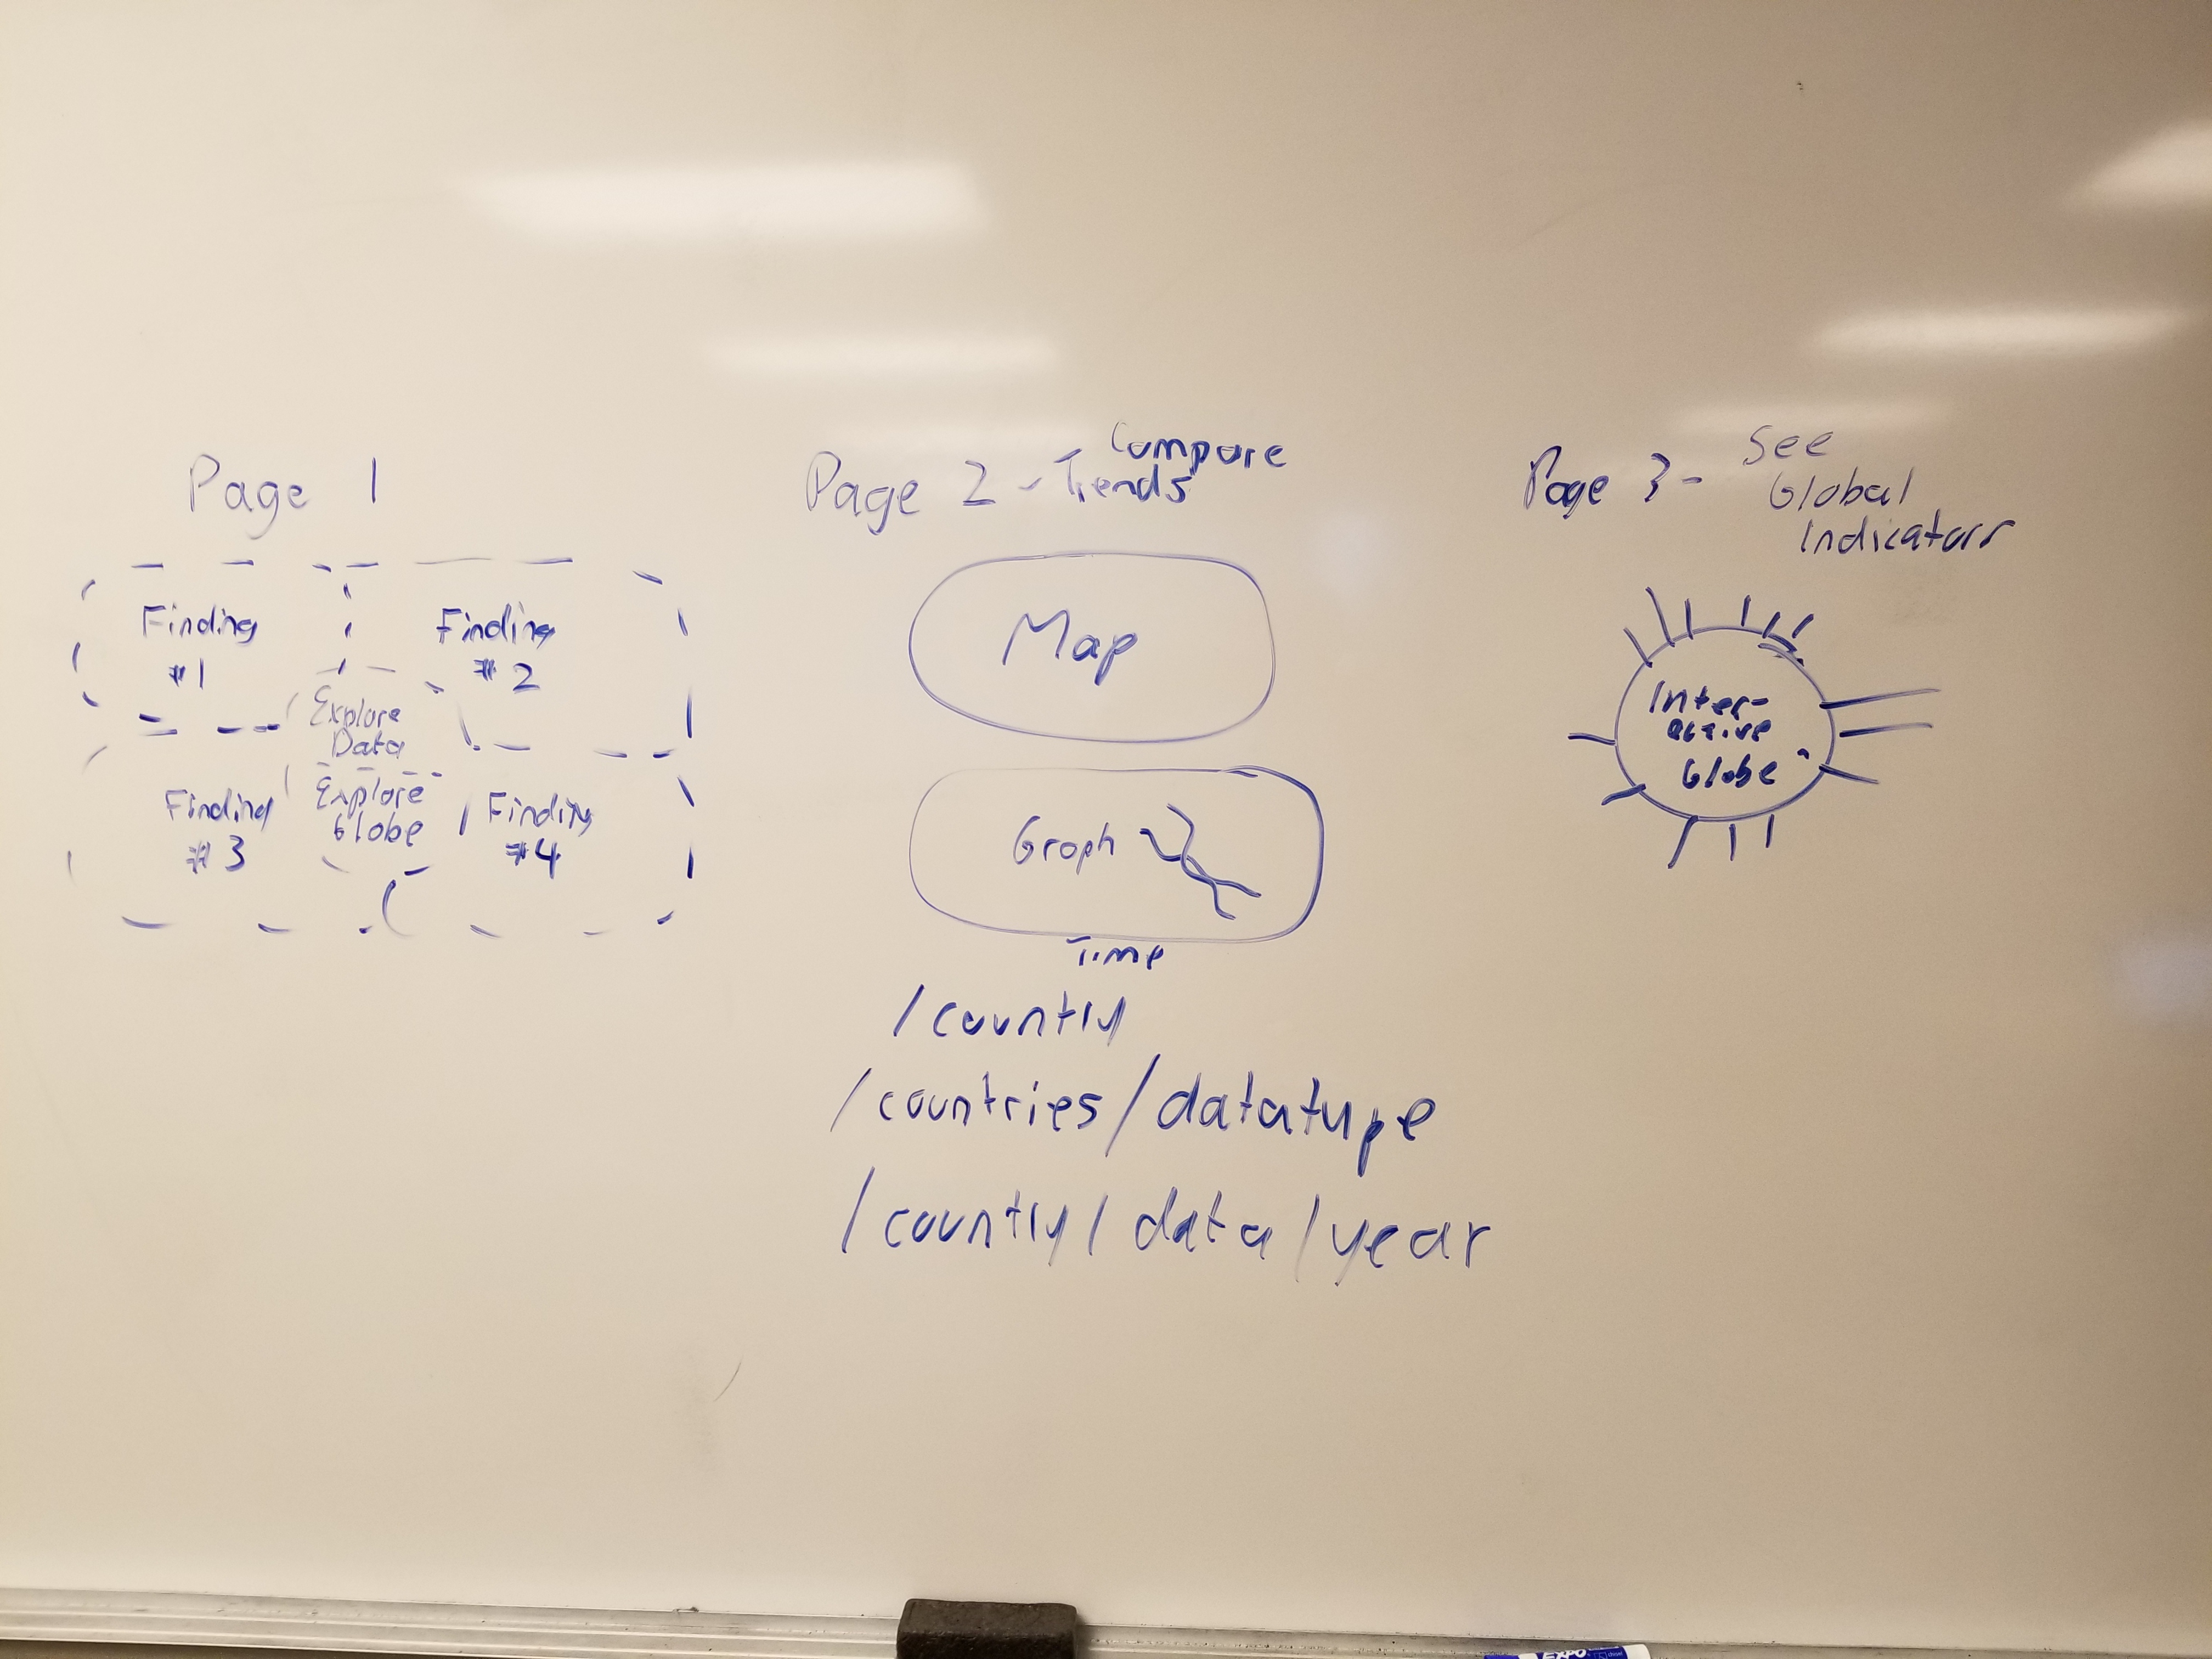 Page 1
Finding
#1
Finding
#2
Explore
Data
Explore
Globe
Finding
#3
Finding
#4
Page 2 - Compare
Trends
Map
Graph
Time
/country
/countries/datatype
/country/data/year
Page 3 - See
Global
Indicators
Inter-
active
Globe
EXPO